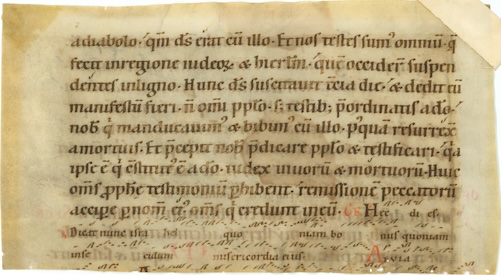 a diabolo · qm̄ ds̄ erat cū illo · Et nos testes sum᷒ omniū · q̄
fecit in regione iudeoꝝ · & hierlm̄ · quē occider̄ suspen
dentes in ligno · Hunc ds̄ suscitauit t̄cia die · & dedit eū
manifestū fieri · n̄ omi pplo · s; testib; p̄ordinatis a do ·
nob̄ q̄ manducauim᷒ & bibim᷒ cū illo · p᷒quā resurrex̄
a mortuis · Et p̄cepit nob̄ p̄dicare pplo & testificari · q̄a
ipse ē q̄ c̄stitut᷒ ē a do · iudex uiuoꝝ & mortuoꝝ · Huic
om̄s ꝓph̄e testimoniū ꝑhibent · remissionē peccatoꝝ
accipe ꝑ nom̄ ei᷒ om̄s q̄ credunt in eū · Hec di es ·
Dicat nunc isra hel quo niam bo nus quoniam
in se culum misericordia eius